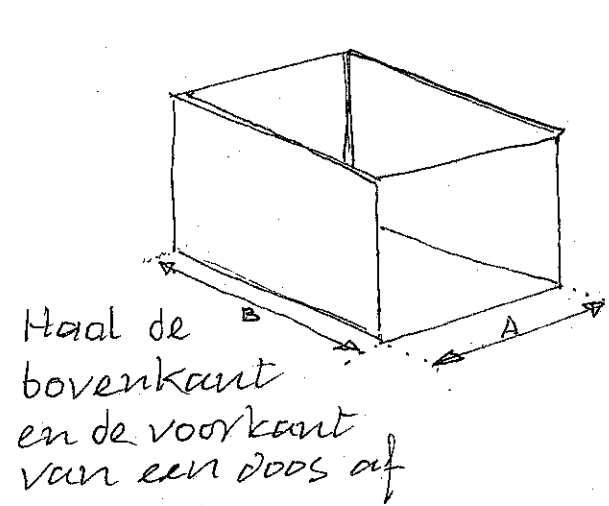 B
A
Haal de
bovenkant
en de voorkant
van een doos af